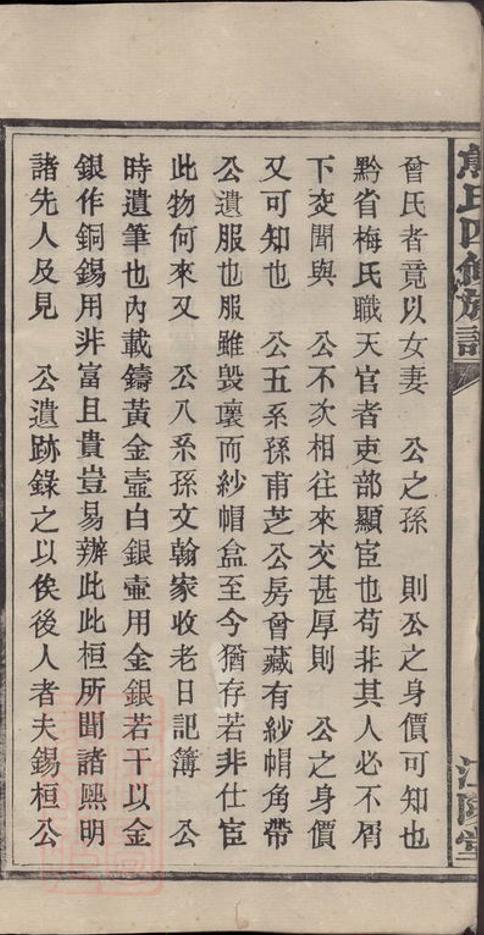 曾氏者竟以女妻　公之孫　則公之身價可知也
黔省梅氏職天官者吏部顯宦也苟非其人必不屑
下交聞與　公不次相往來交甚厚則　公之身價
又可知也　公五系孫甫芝公房曾藏有紗帽角帶
公遺服也服雖毀壞而紗帽盒至今猶存若非仕宦
此物何來又　公八系孫文翰家收老日記簿　公
時遺筆也內載鑄黃金壼白銀壼用金銀若干以金
銀作銅錫用非富且貴豈易辦此此桓所聞諸熙明
諸先人及見　公遺跡錄之以俟後人者夫錫桓公
氏四修族譜
江陵堂